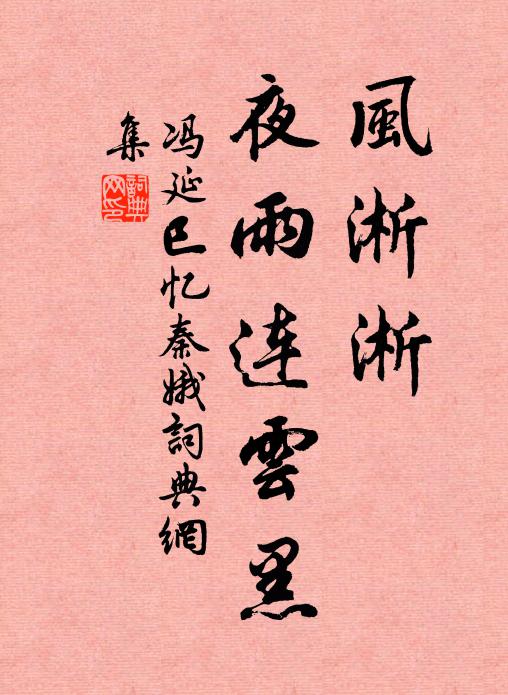 風淅淅
夜雨連雲黑
冯延巳忆秦娥詞典網
集
詞典
网印